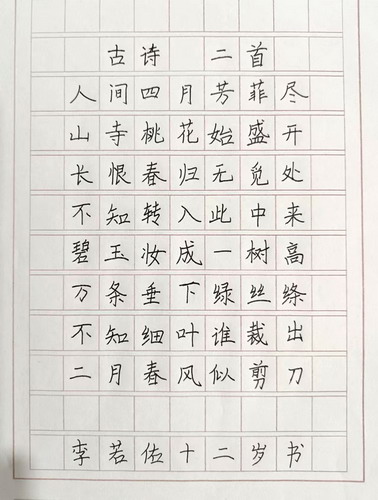 古诗 二首
人间四月芳菲尽
山寺桃花始盛开
长恨春归无觅处
不知转入此中来
碧玉妆成一树高
万条垂下绿丝绦
不知细叶谁裁出
二月春风似剪刀
李若佑十二岁书